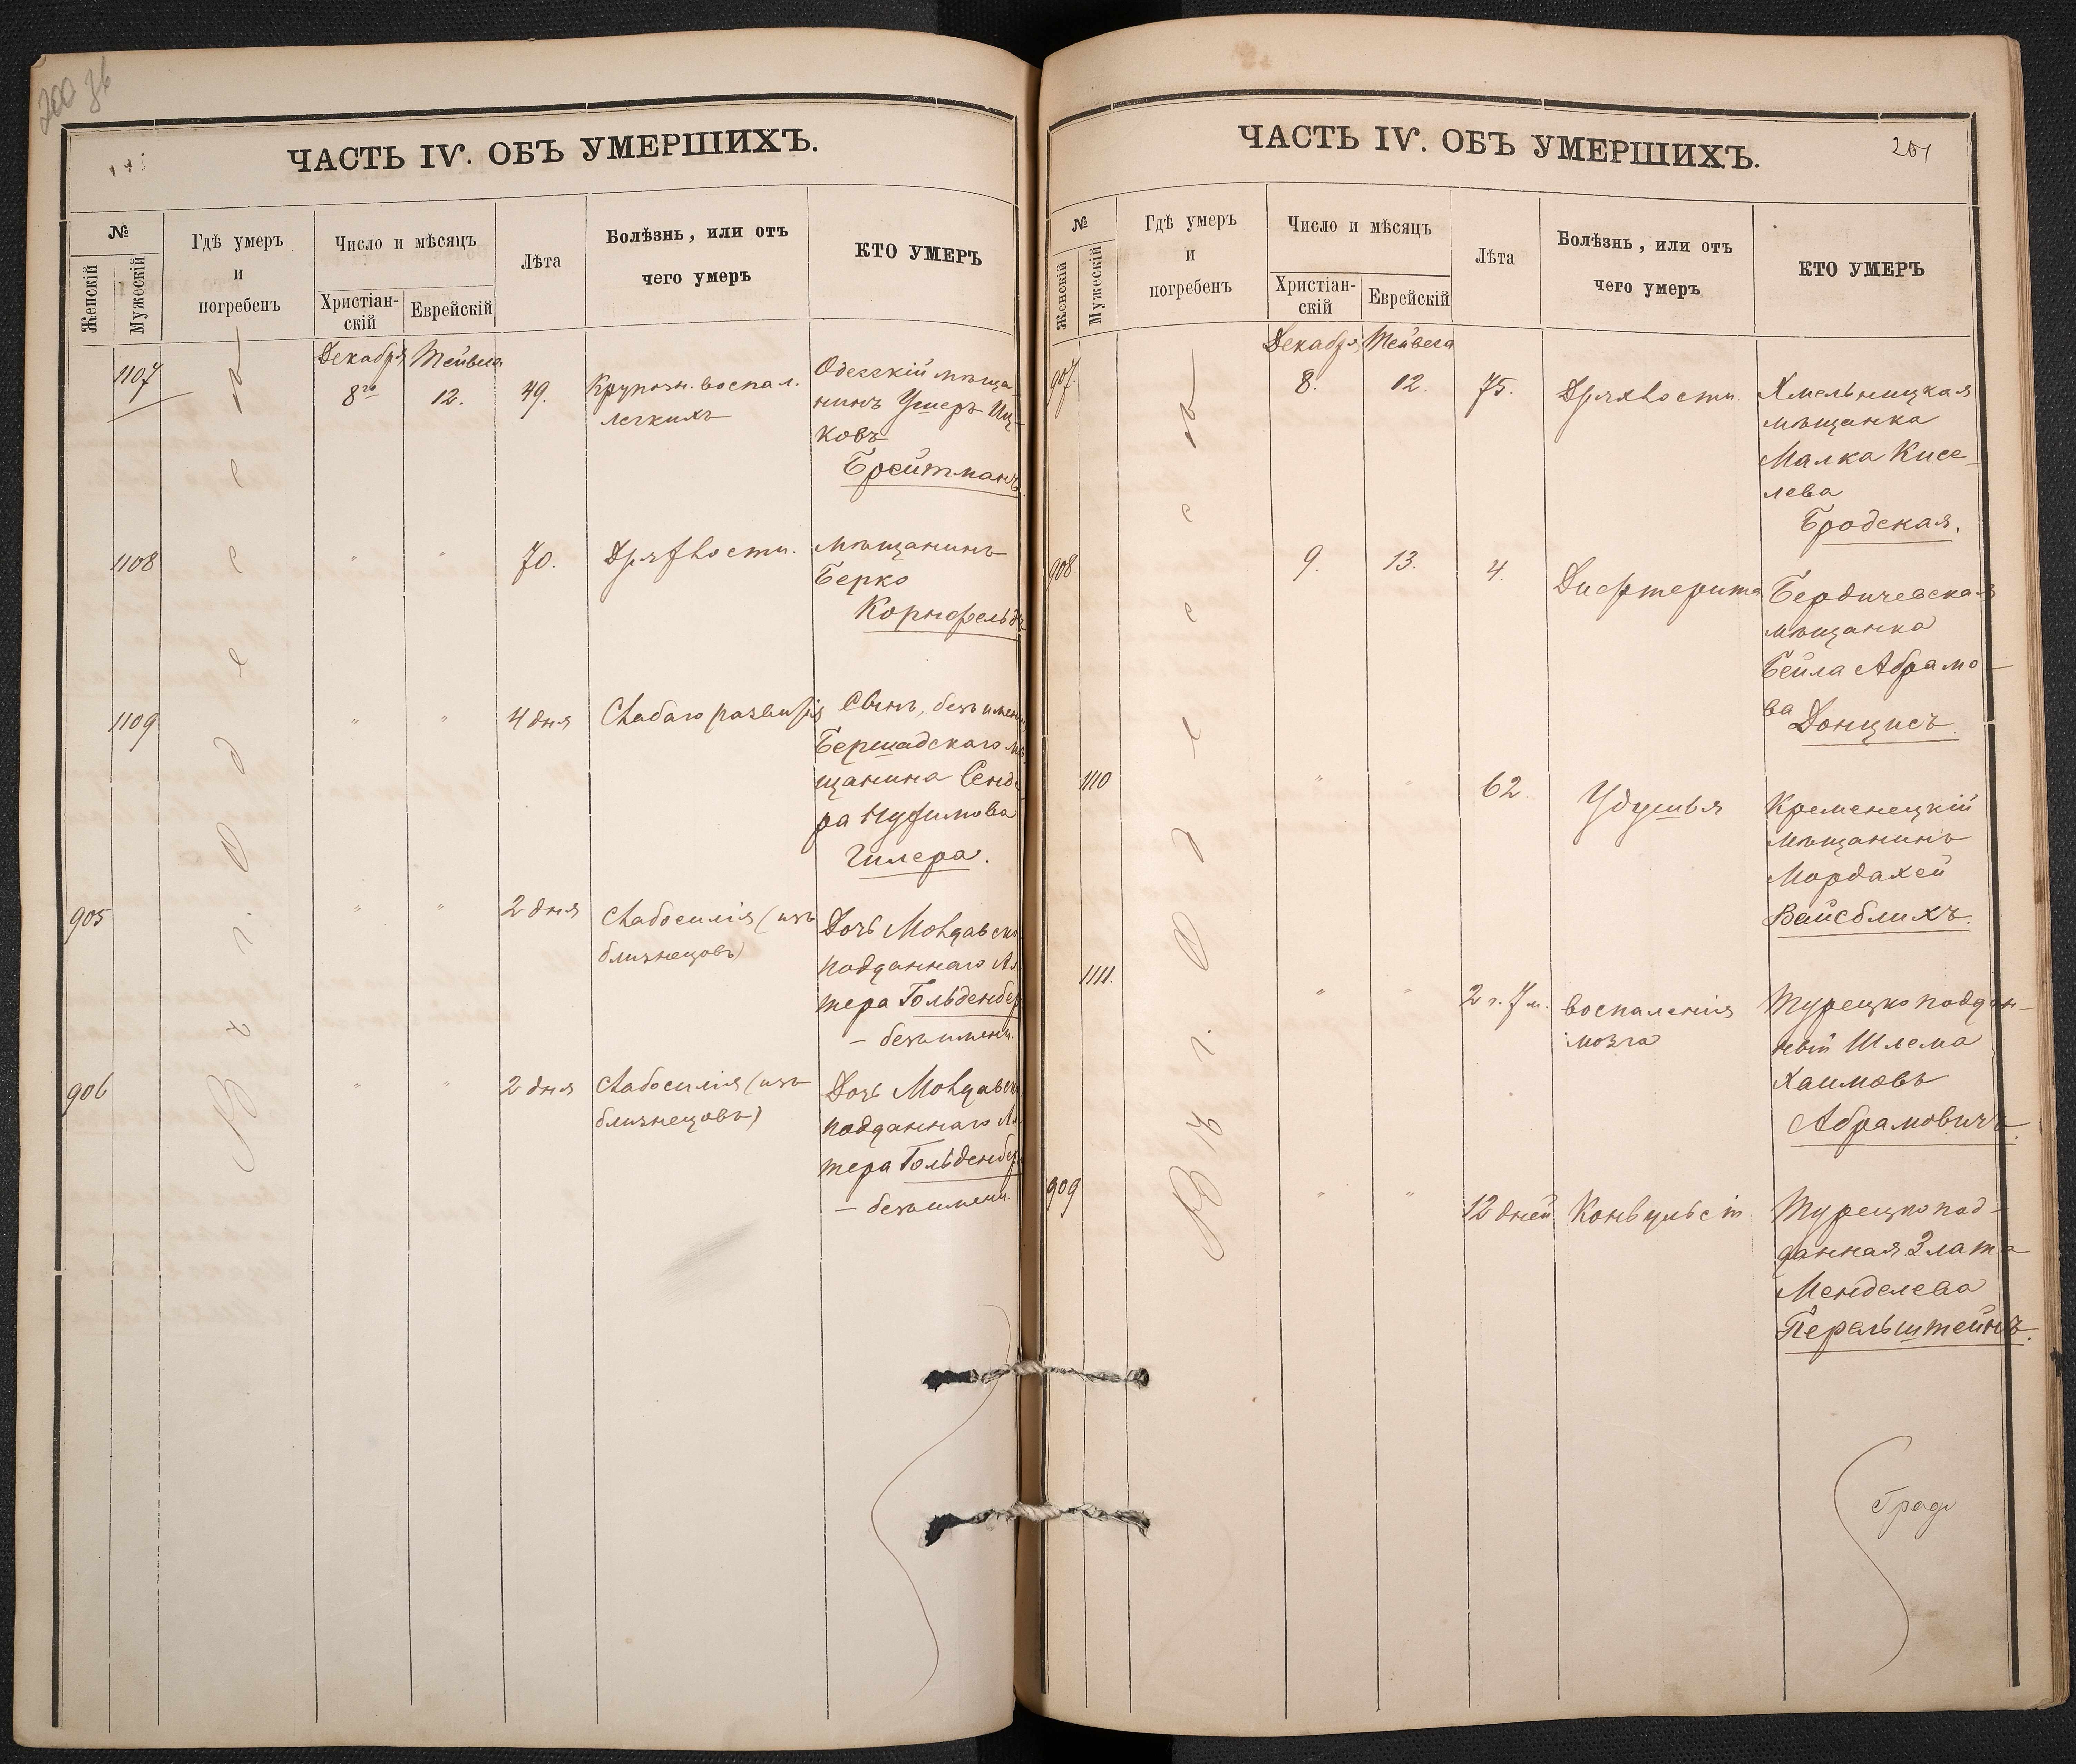 200 зв
ЧАСТЬ IV. ОБЪ УМЕРШИХЪ.
№
Женскій
Мужескій
Гдѣ умеръ
и
погребенъ
Число и мѣсяцъ
Христіан-
скій
Еврейскій
Лѣта
Болѣзнь, или отъ
чего умеръ
КТО УМЕРЪ
Въ г. Одессѣ
Декабря Тейвеса
1107
8го 12. 49.
Крупозн. воспал.
легкихъ
Одесскій мѣща
нинъ Ушеръ Иц-
ковъ
Брейтманъ.
1108
" " 70. Дряхлости.
Мѣщанинъ
Берко
Корнфельдъ
1109
" " 4 дня Слабаго развитія
Сынъ, безъ имени,
Бершадскаго мѣ
щанина Сенде
ра Нухимова
Гилера.
905
" " 2 дня Слабосилія (изъ
близнецовъ)
Дочь Молдавско
подданнаго Ал
тера Гольденбер
– безъ имени.
906
" " 2 дня Слабосилія (изъ
близнецовъ)
Дочь Молдавск
подданнаго Ал
тера Гольденбер
– безъ имени.
ЧАСТЬ IV. ОБЪ УМЕРШИХЪ.
201
№
Женскій
Мужескій
Гдѣ умеръ
и
погребенъ
Число и мѣсяцъ
Христіан-
скій
Еврейскій
Лѣта
Болѣзнь, или отъ
чего умеръ
КТО УМЕРЪ
Въ г. Одессѣ
Декабря Тейвеса
907.
8. 12. 75. Дряхлости.
Хмельницкая
мѣщанка
Малка Кисе-
лева
Бродская.
908
9. 13. 4. Дифтерита
Бердичевская
мѣщанка
Бейла Абрамо-
ва Донцисъ.
1110
" " 62. Удушья
Кременецкій
мѣщанинъ
Мордахей
Вайсблихъ.
1111.
" " 2 г. 7 м. воспаленія
мозга
Турецко поддан-
ный Шлема
Хаимовъ
Абрамовичъ.
909
" " 12 дней Конвульсіи
Турецко под-
данная Злата
Менделева
Перельштейнъ.